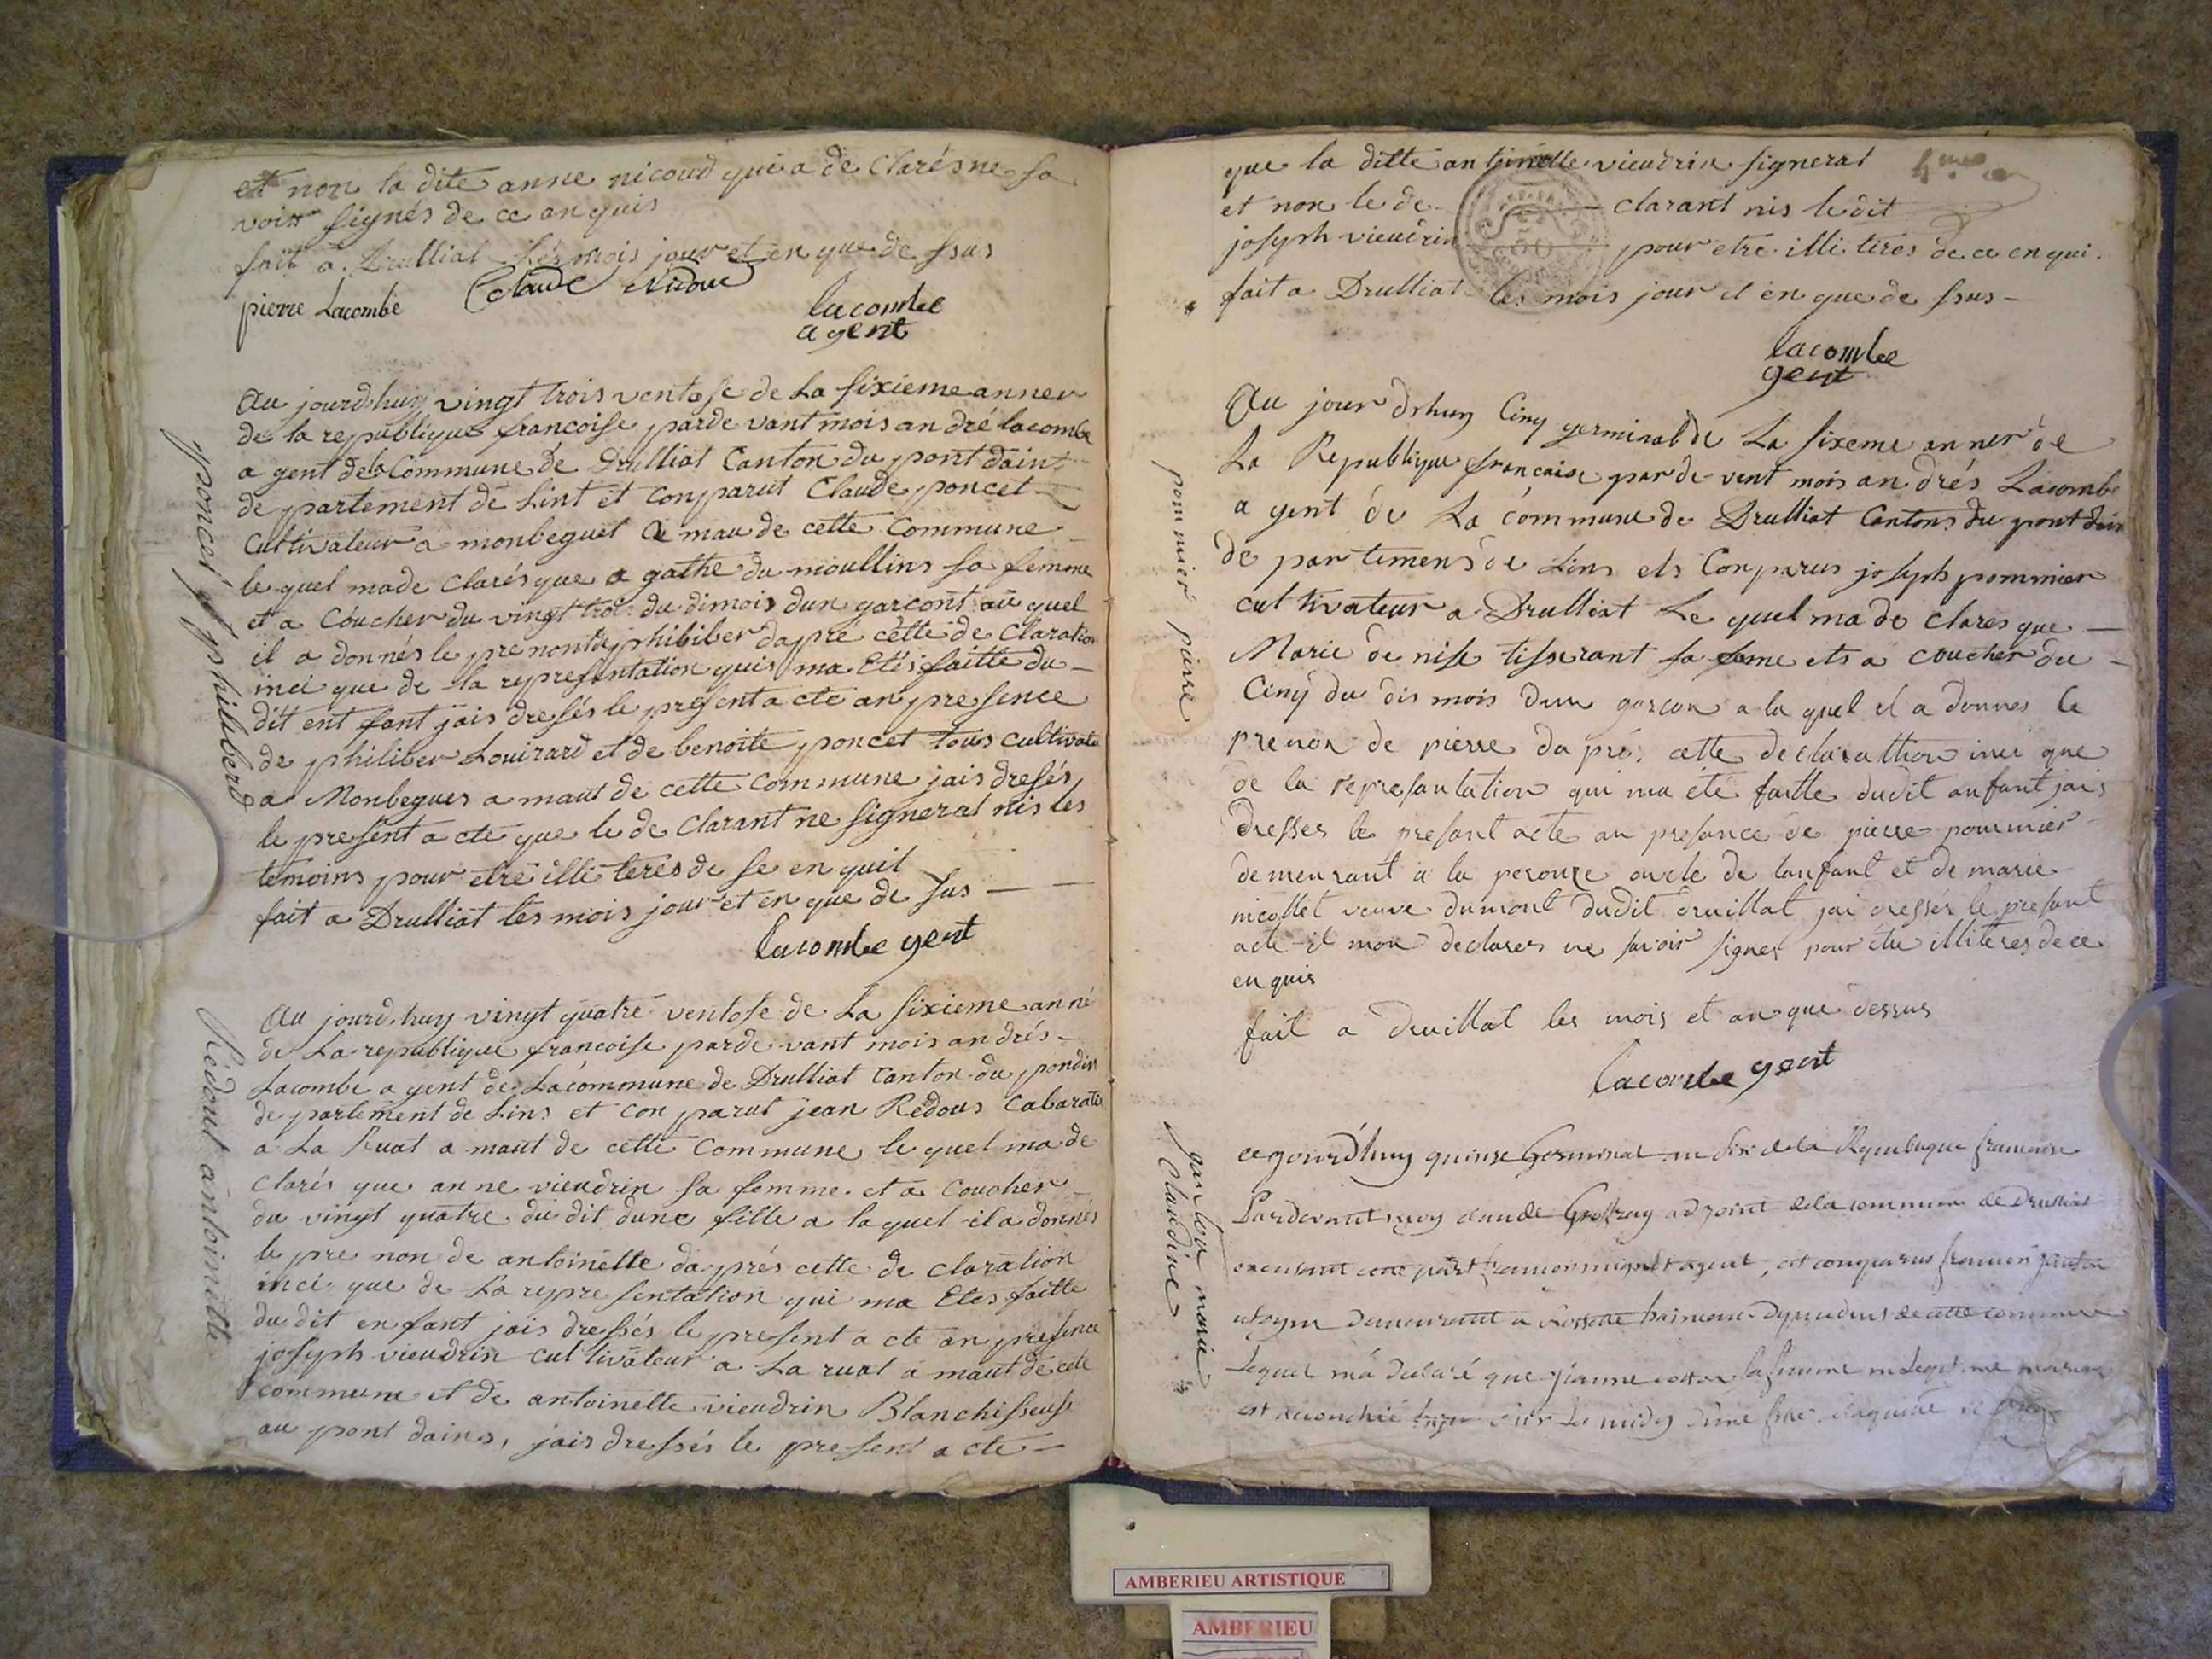 et non la dite anne nicoud qui a de Clarés ne sa
voir signés de ce an quis
fait a Drulliat Les mois jour et en que de ssus
pierre Lacombe Claude Nicoud lacombe
agent
poncet philiberd
Au jourdhuy vingt trois ventose de La sixieme anner
de la republique francoise parde vant mois an dré lacombe
a gent de la Commune de Drulliat Canton du pont dain
de partement de Lint et Conparut Claude poncet
Cultivateur a monbeguet a mau de cette Commune
le quel made clarés que a gathe du moullins sa femme
et a Coucher du vingt troi du dimois dun garcont au quel
il a donnés le pre nonde phibiber dapré cette de Claration
inci que de la represantation quis ma Etés faitte du
dit ent fant jais dresés le present a cte an presence
de philiber Louirard et de benoite poncet tous cultivate
a Monbegues a maut de cette Commune jais dresés
le present a cte que le de Clarant ne signerat nis les
temoins pour etre illi terés de se en quil
fait a Drulliat les mois jour et en que de sus
lacombe gent
Rédout antoinette
Au jourd.huy vingt quatre ventose de La sixieme anné
de La republique francoise parde vant mois an drés
Lacombe a gent de La commune de Drulliat Canton du pondin
de partement de Lins et con parut jean Redous Cabaratie
a La Ruat a maut de cette Commune le quel ma de
clarés que anne vieudrin sa femme et a Coucher
du vingt quatre du dit dune fille a la quel il a donnés
le pre non de antoinette da prés cette de claration
inci que de La repre sentation qui ma Etes faitte
du dit en fant jais dressés le present a cte an presence
joseph vieudrin cul tivateur a La ruat a maut de cete
commune et de antoinette vieudrin Blanchisseuse
au pont dains, jais dressés le present a cte
que la ditte antoinette vieudrin signerat
et non le de clarant nis le dit
joseph vieudrin pour etre illi terés de ce en qui
fait a Drulliat les mois jour et en que de ssus
lacombe
gent
pommier pierre
Au jour dshuy Cinq germinal de La sixeme anner de
La Republique francaise par de vent mois an drés Lacombe
a gent de La commune de Drulliat Cantons du pont dain
de par temens de Lins ets Conparus joseph pommier
cultivateur a Drulliat Le quel ma de clares que
Marie denise tisserant sa fame ets a coucher du
Cinq du dis mois dun garcon a la quel il a donnes le
prenon de pierre da pré cette declarattion inci que
de la represantation qui ma été faitte dudit anfant jais
dresser le presant acte an presance de pierre pommier
demeurant a la perouze oncle de lanfant et de marie
nicollet veuve dumont dudit druillat jai dressés le presant
acte il mon declarer ne savoir signer pour étre illiteres de ce
enquis
fait a druillat les mois et an que dessus
lacombe gent
marie
Claudine
cejourdhuy quinse Germinal an six de la Republique francaise
Pardevant moy claude adjoint de la commune de Drulliat
agent, est comparus
demeurant a de cette commune
Lequel má declaré que jeanne sa femme
est acouchié
AMBERIEU ARTISTIQUE
AMBERIEU